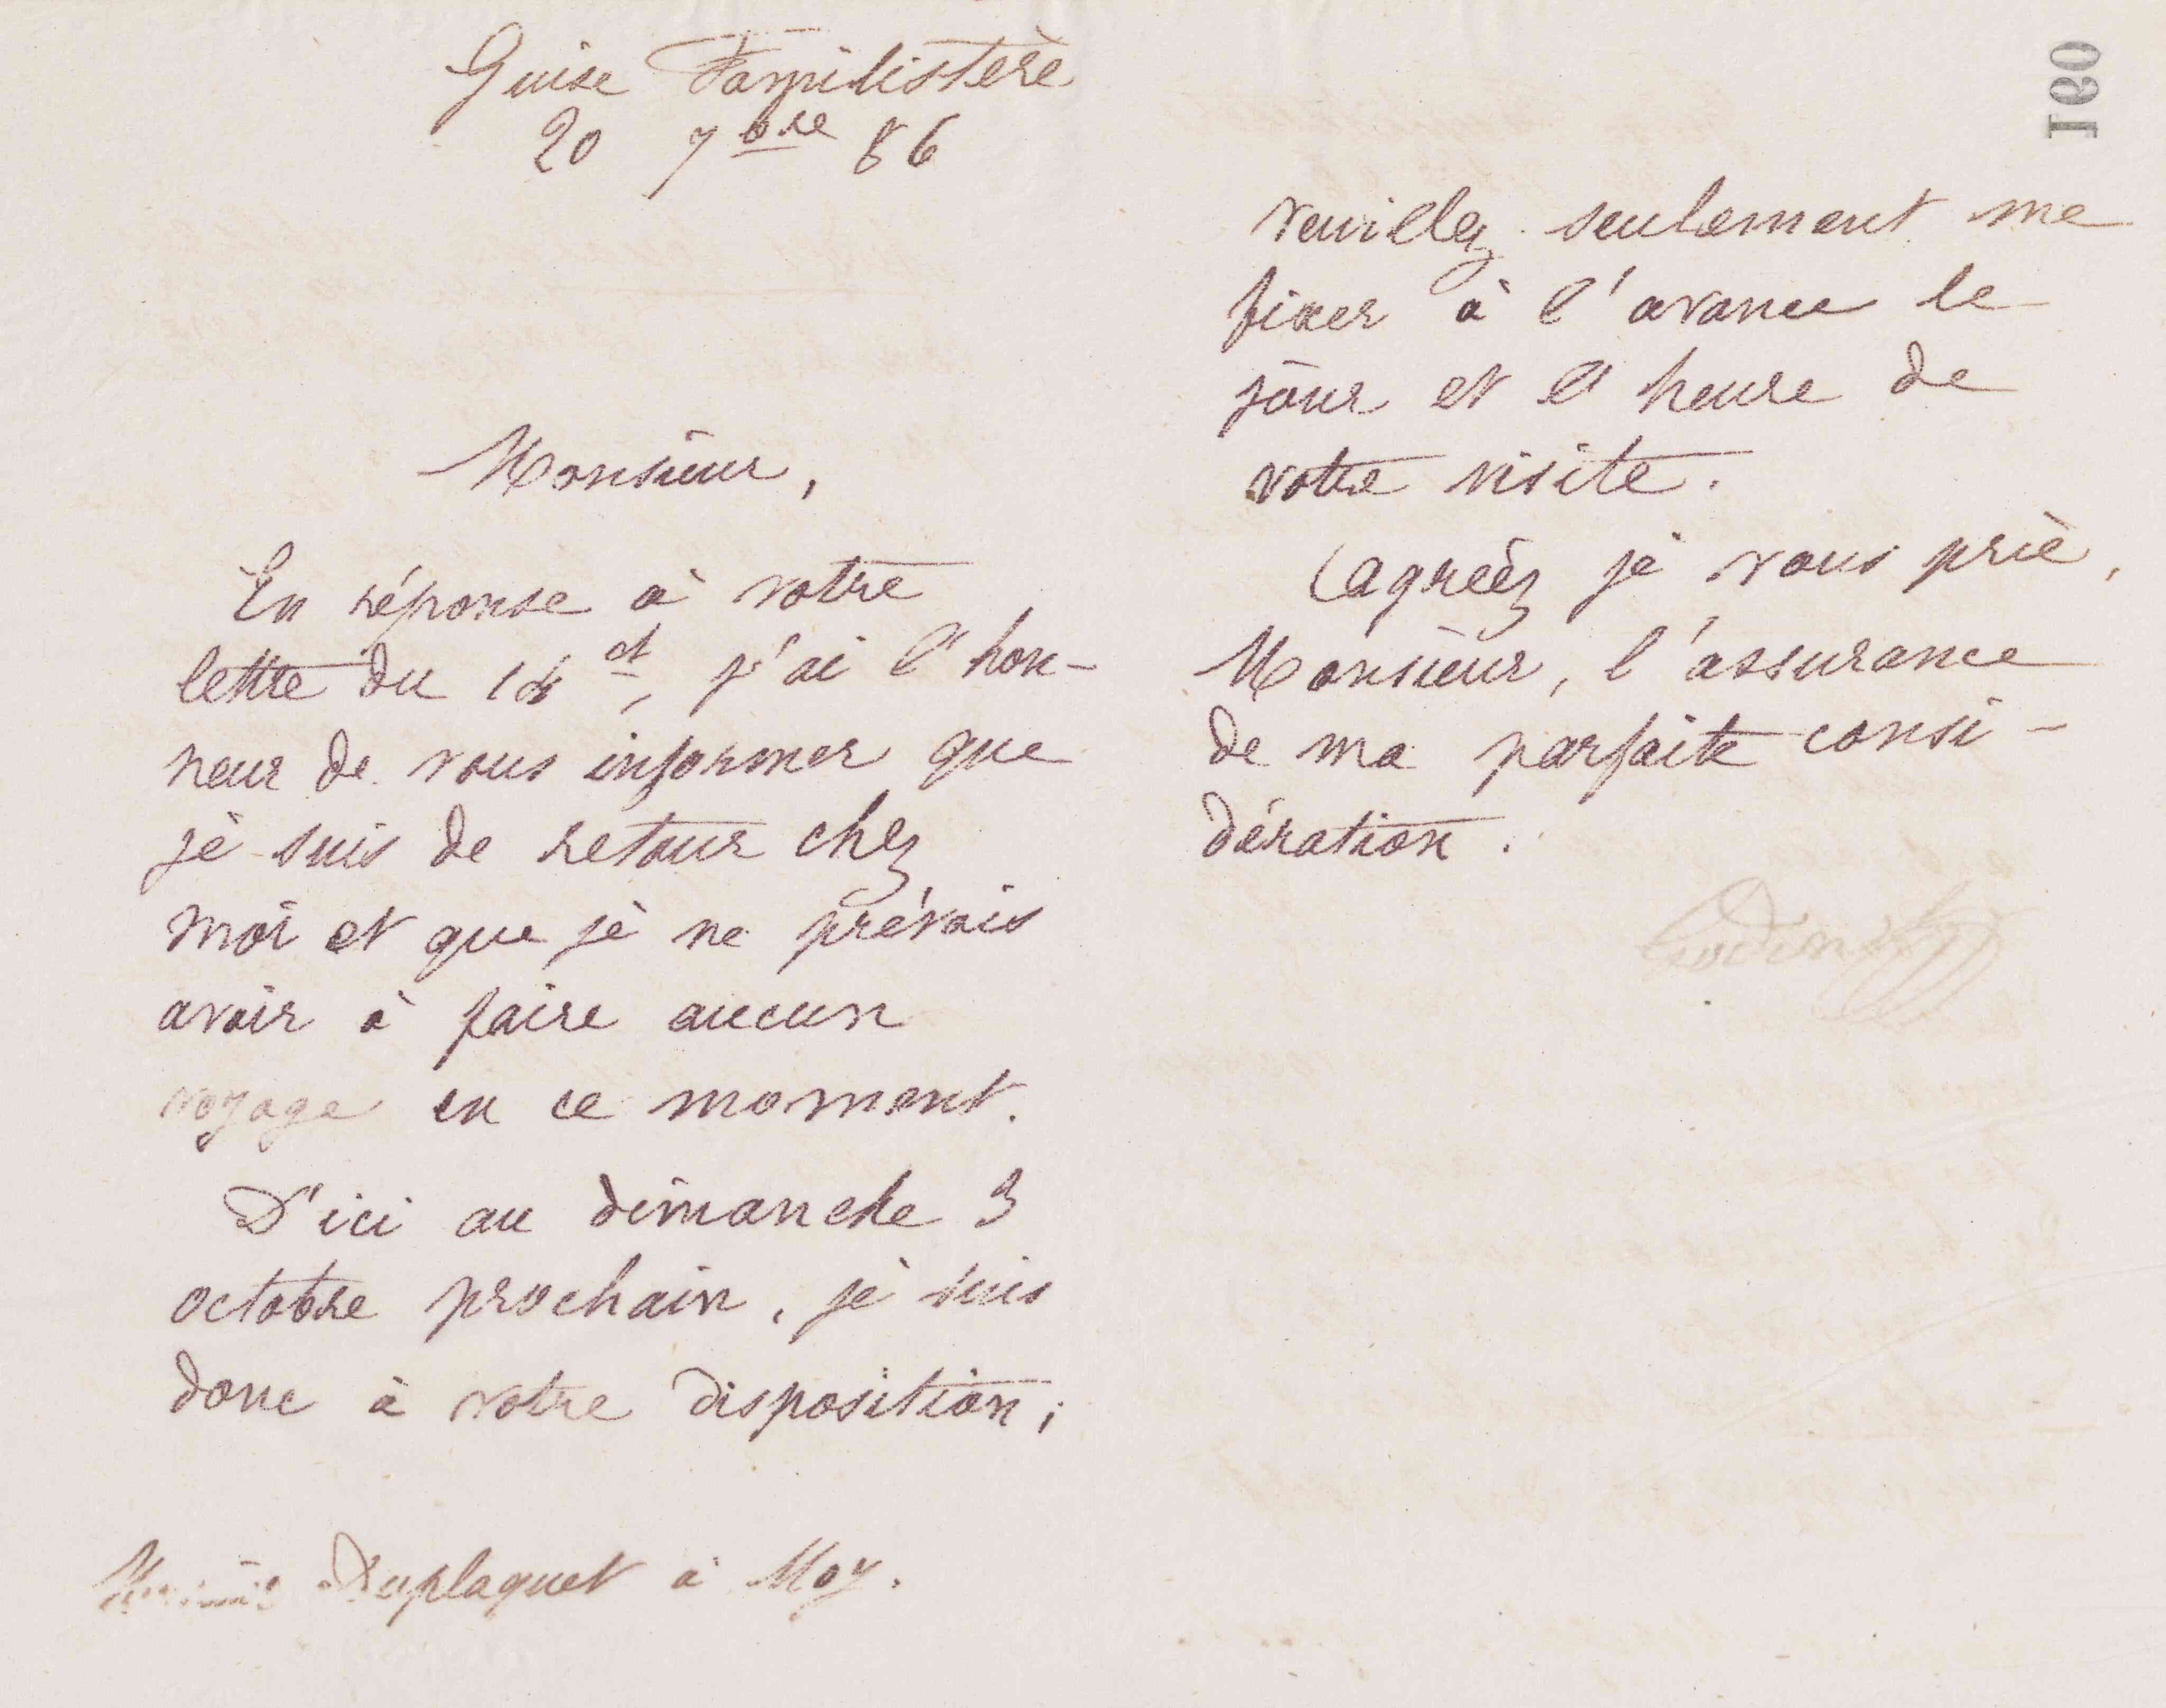 Guise Familistère
20 7bre 86
Monsieur,
En réponse à votre
lettre du 14 ct, j'ai l'hon-
neur de vous informer que
je suis de retour chez
moi et que je ne prévois
avoir à faire aucun
voyage en ce moment.
D'ici au dimanche 3
octobre prochain, je suis
donc à votre disposition;
Monsieur Duplaquet à Moy.
160
veuillez seulement me
fixer à l'avance le
jour et l'heure de
votre visite.
Agréez je vous prie,
Monsieur, l'assurance
de ma parfaite consi-
dération.
Godin